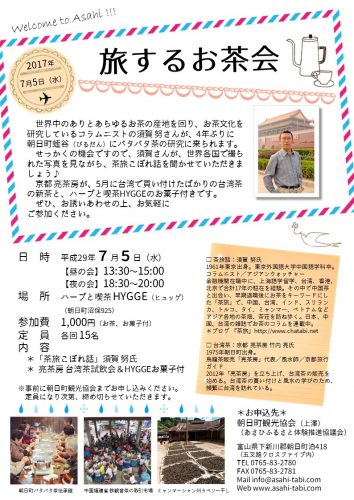 Welcome to Asahi !!!
旅するお茶会
2017年
7月5日（水）
世界中のありとあらゆるお茶の産地を回り、お茶文化を
研究しているコラムニストの須賀 努さんが、4年ぶりに
朝日町蛭谷（びるだん）にバタバタ茶の研究に来られます。
せっかくの機会ですので、須賀さんが、世界各国で撮ら
れた写真を見ながら、茶旅こぼれ話を聞かせていただきま
しょう♪
京都 亮茶房が、5月に台湾で買い付けたばかりの台湾茶
の新茶と、ハーブと喫茶HYGGEのお菓子付きです。
ぜひ、お誘いあわせの上、お気軽に
ご参加ください。
日　時　平成29年7月5日（水）
【昼の会】13:30～15:00
【夜の会】18:30～20:00
場　所　ハーブと喫茶HYGGE（ヒュッゲ）
（朝日町沼保925）
参加費　1,000円（お茶、お菓子付）
定　員　各回15名
内　容　＊「茶旅こぼれ話」須賀努氏
＊ 亮茶房 台湾茶試飲会＆HYGGEお菓子付
※事前に朝日町観光協会までお申し込みください。
定員になり次第、締め切らせていただきます。
□ 茶旅話：須賀 努氏
1961年東京生。東京外国語大学中国語学科卒。
コラムニスト／アジアンウォッチャー
金融機関在職中に、上海語学留学、台湾、香港、
北京で合計17年の駐在を経験。その中で中国茶
と出会い、早期退職後にお茶をキーワードにし
た「茶旅」で、中国、台湾、インド、スリラン
カ、トルコ、タイ、ミャンマー、ベトナムなど
アジア各地の茶畑、茶荘を訪ね歩く。日本、中
国、台湾の雑誌でお茶のコラムを連載中。
＊ブログ「茶旅」http://www.chatabi.net
□ 台湾茶：京都 亮茶房 竹内 亮氏
1975年朝日町出身。
烏龍茶販売「亮茶房」代表／風水師／京都旅行
ガイド
2012年「亮茶房」を立ち上げ、台湾茶の販売を
始める。台湾茶の買い付けと風水の学びのため、
頻繁に台湾を訪れている。
＊お申込先＊
朝日町観光協会（上澤）
（あさひふるさと体験推進協議会）
富山県下新川郡朝日町泊418
（五叉路クロスファイブ内）
TEL 0765-83-2780
FAX 0765-83-2781
info@asahi-tabi.com
Web www.asahi-tabi.com
朝日町バタバタ茶伝承館
中国福建省 鉄観音茶の取引市場
ミャンマーシャン州ラペソー干し